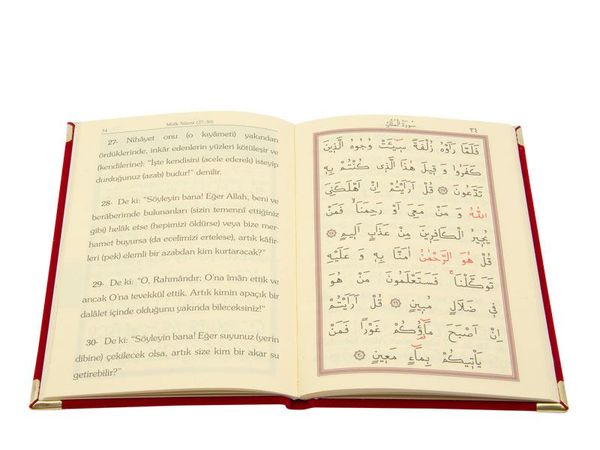 34
Mülk Sûresi (27-30)
27- Nihâyet onu (o kıyâmeti) yakından
ördüklerinde, inkâr edenlerin yüzleri kötüleşir ve
(kendilerine): “İşte kendisini (acele ederek) isteyip
durduğunuz (azab) budur!” denilir.
28- De ki: “Söyleyin bana! Eğer Allah, beni ve
berâberimde bulunanları (sizin temennî ettiğiniz
gibi) helâk etse (hepimizi öldürse) veya bize mer-
hamet buyursa (da ecelimizi ertelese), artık kâfir-
leri (pek) elemli bir azabdan kim kurtaracak?”
29- De ki: “O, Rahmândır; O'na îman ettik ve
ancak O'na tevekkül ettik. Artık kimin apaçık bir
dalâlet içinde olduğunu yakında bileceksiniz!”
30- De ki: “Söyleyin bana! Eğer suyunuz (yerin
dibine) çekilecek olsa, artık size kim bir akar su
getirebilir?”
سُورَةُ الْمُلْكِ
٣٤
فَلَمَّا رَاَوْهُ زُلْفَةً سٓيـَٔتْ وُجُوهُ الَّذ۪ينَ
كَفَرُوا وَ ق۪يلَ هٰذَا الَّذ۪ي كُنْتُمْ بِه۪
تَدَّعُونَ ۞ قُلْ اَرَاَيْتُمْ اِنْ اَهْلَكَنِيَ
اللّٰهُ وَ مَنْ مَعِيَ اَوْ رَحِمَنَاۙ فَمَنْ
يُج۪يرُ الْكَافِر۪ينَ مِنْ عَذَابٍ اَل۪يمٍ ۞
قُلْ هُوَ الرَّحْمٰنُ اٰمَنَّا بِه۪ وَ عَلَيْهِ
تَوَكَّلْنَاۚ فَسَتَعْلَمُونَ مَنْ هُوَ
ف۪ي ضَلَالٍ مُب۪ينٍ ۞ قُلْ اَرَاَيْتُمْ
اِنْ اَصْبَحَ مَٓاؤُ۬كُمْ غَوْرًا فَمَنْ
يَأْت۪يكُمْ بِمَٓاءٍ مَع۪ينٍ ۞